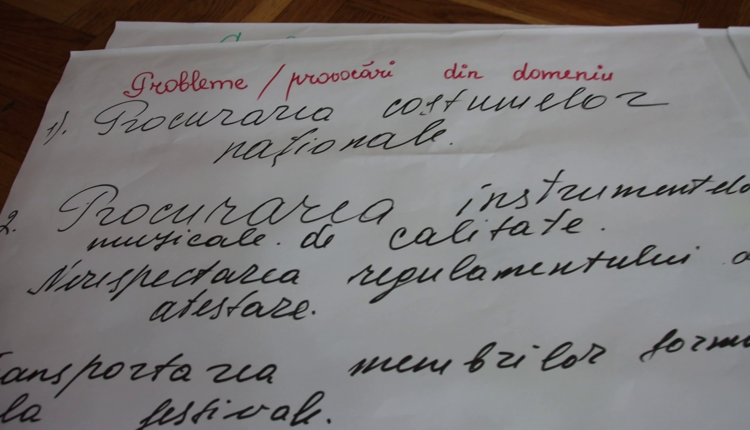 Probleme / provocări din domeniu
1). Procurarea costumelor
naționale.
2. Procurarea instrumentelo
muzicale de calitate.
Nerespectarea regulamentului
atestare.
ansportarea membrilor formu
la festivale.